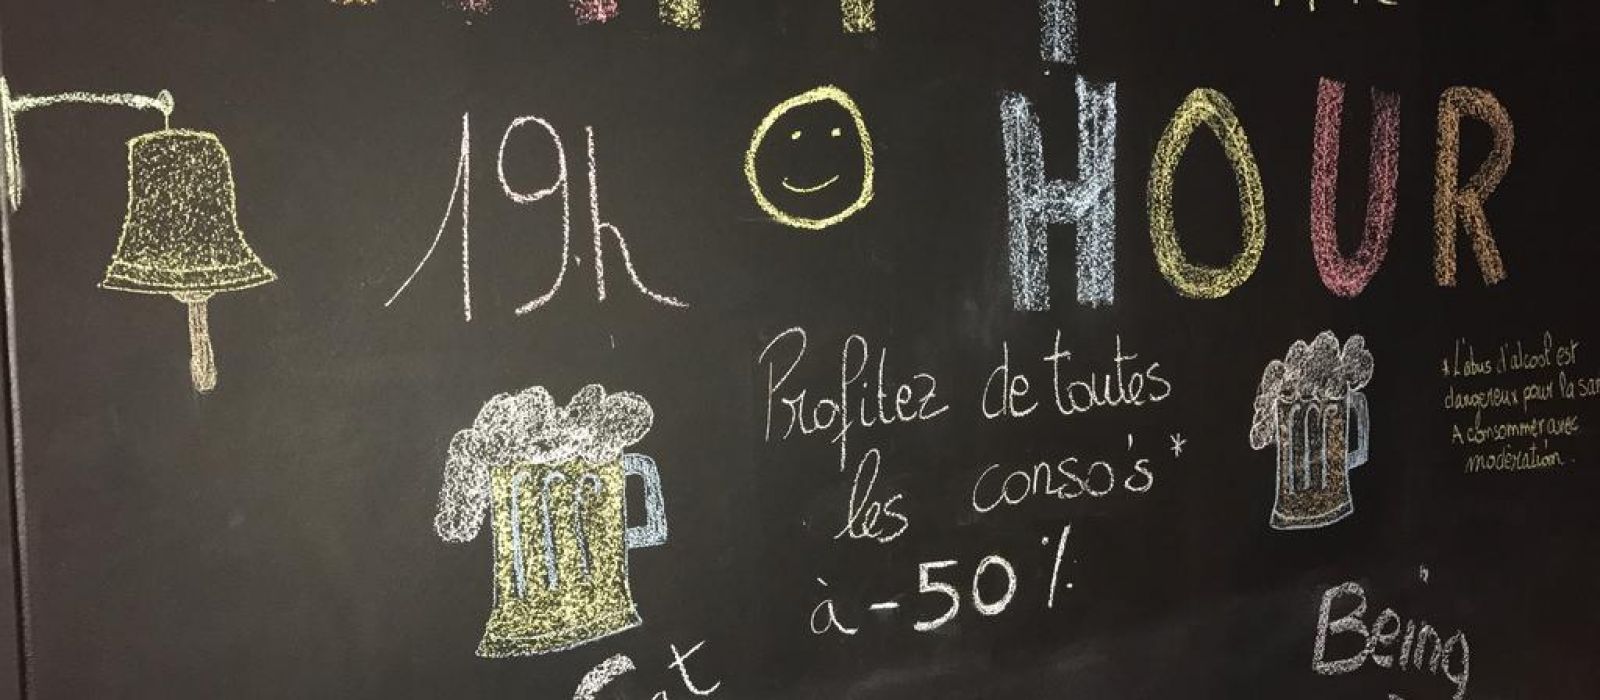 19h HOUR
Profitez de toutes
les conso's*
à -50%
* L'abus d'alcool est
dangereux pour la san
A consommer avec
modération.
Being